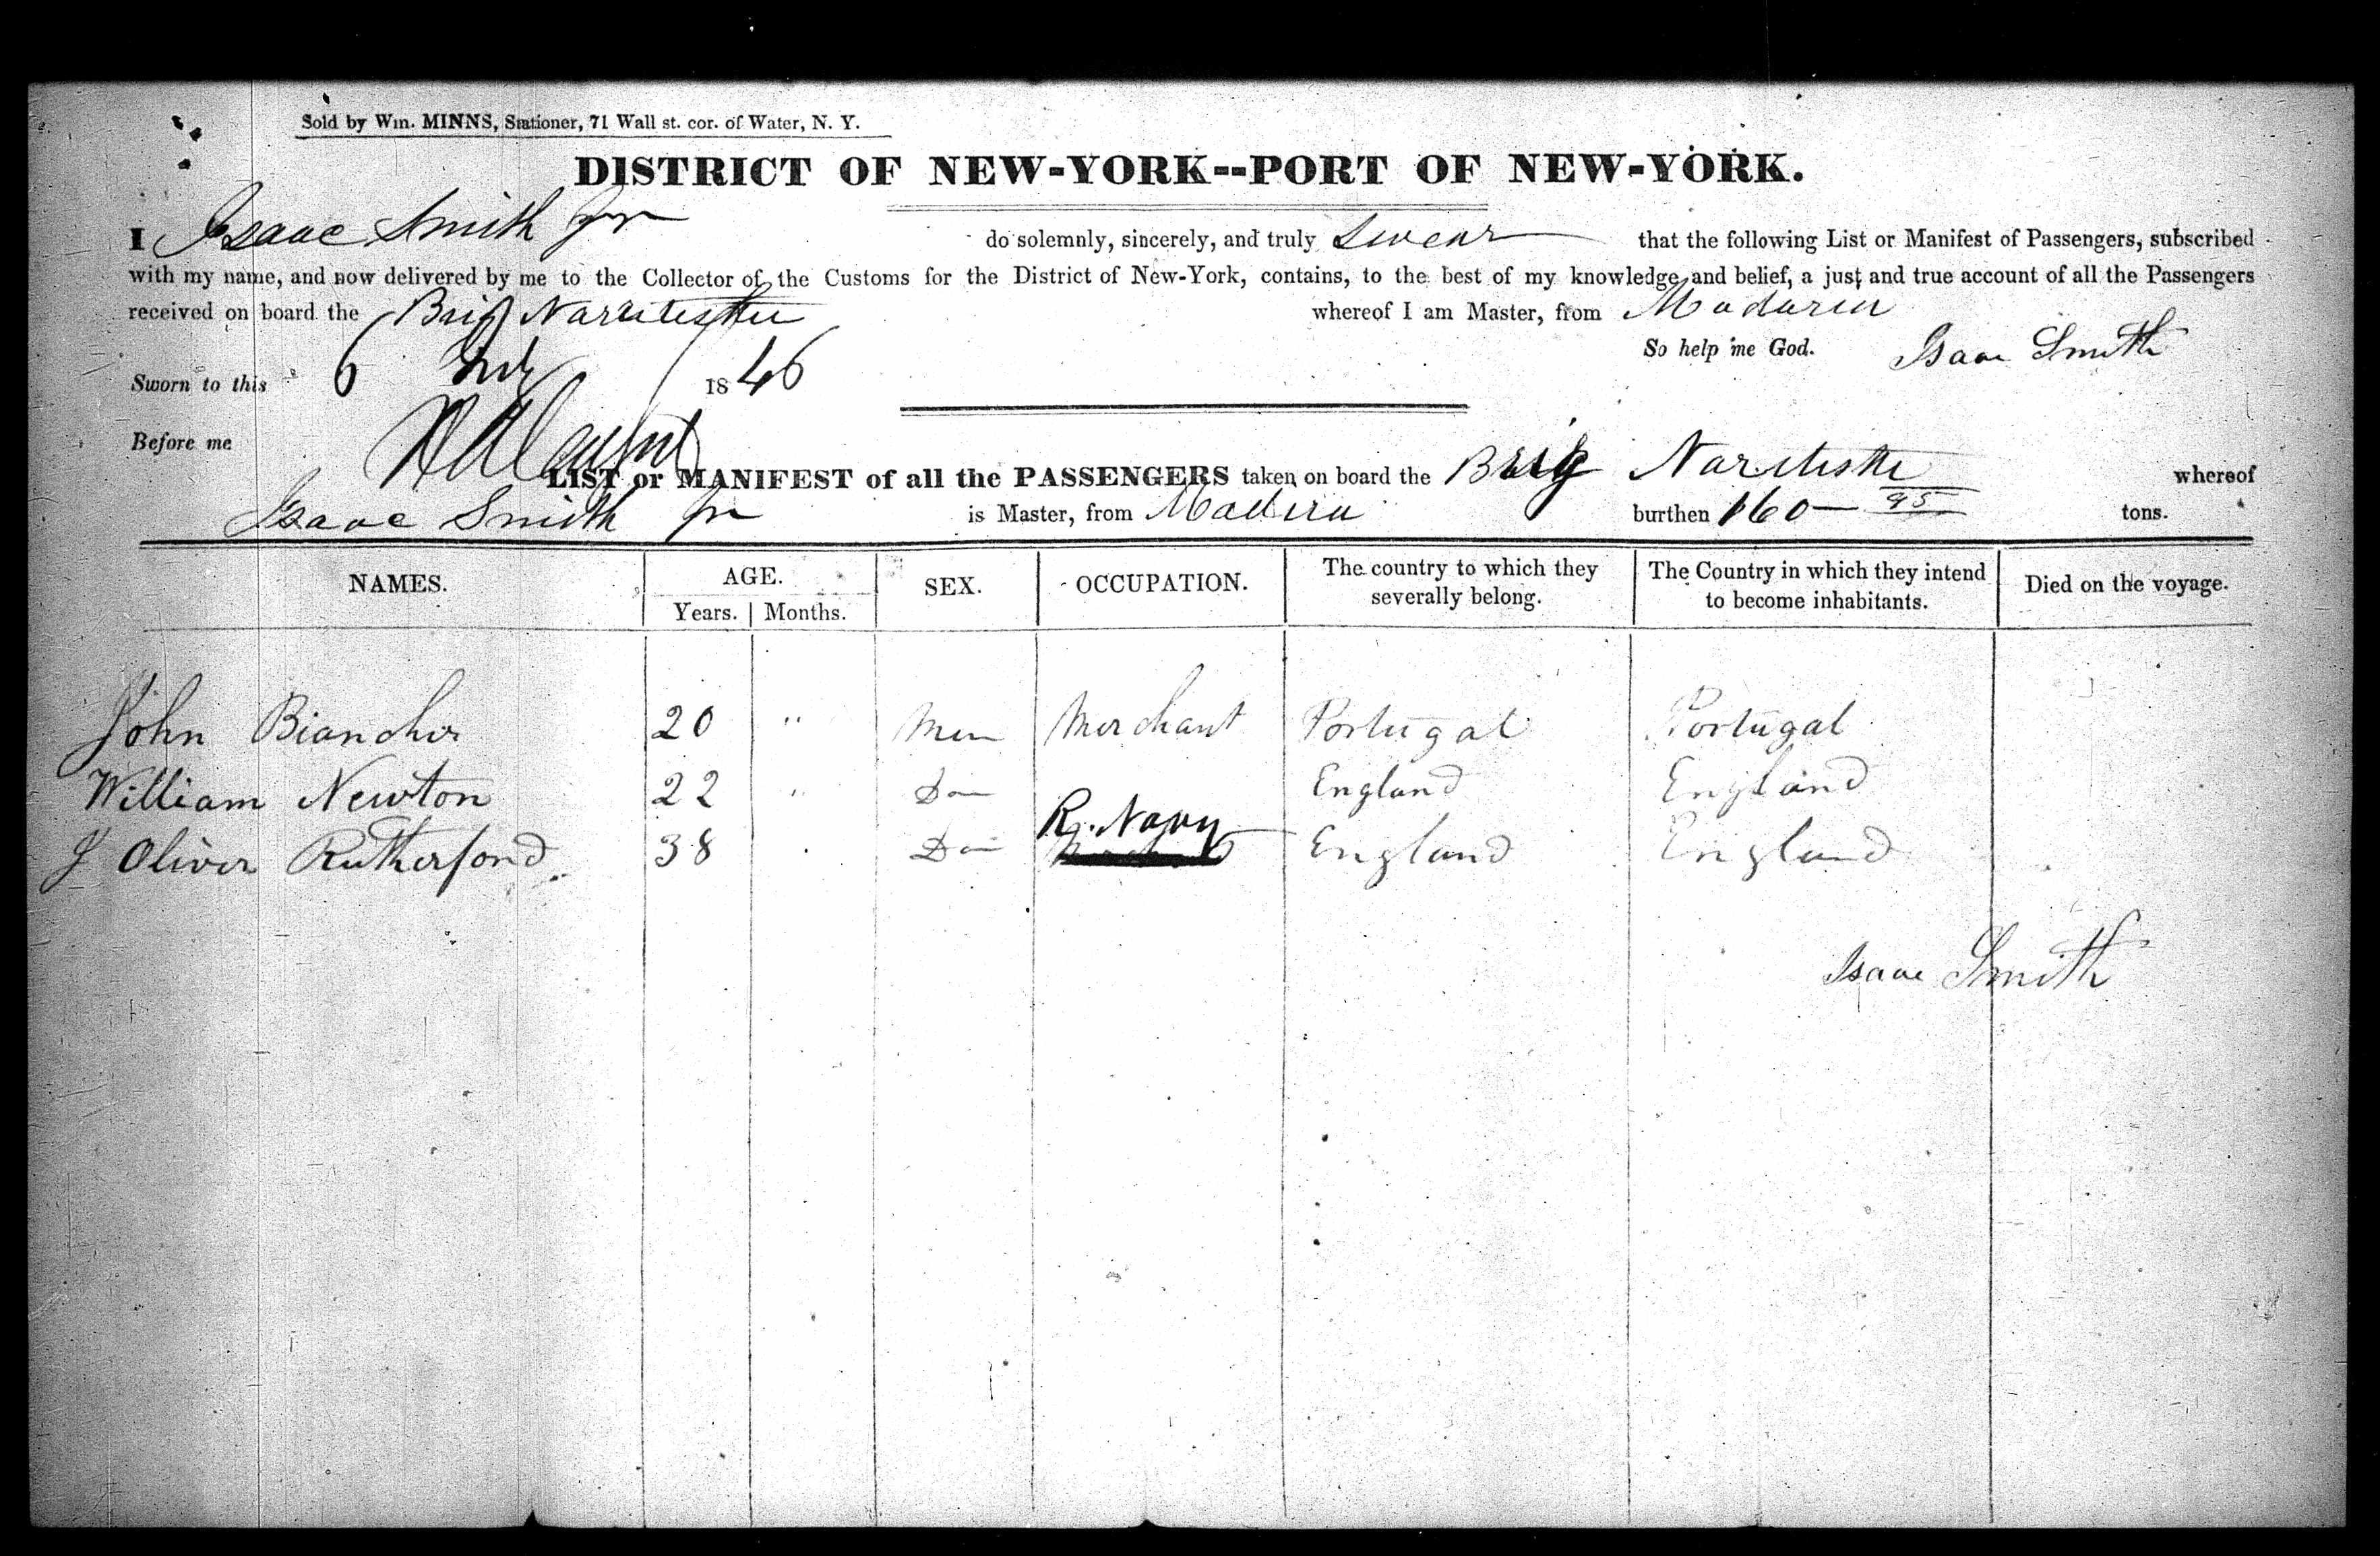 Sold by Wm. MINNS, Stationer, 71 Wall st. cor. of Water, N. Y.
DISTRICT OF NEW-YORK--PORT OF NEW-YORK.
I Isaac Smith Jr do solemnly, sincerely, and truly Swear that the following List or Manifest of Passengers, subscribed
with my name, and now delivered by me to the Collector of the Customs for the District of New-York, contains, to the best of my knowledge and belief, a just and true account of all the Passengers
received on board the Brig whereof I am Master, from
So help me God. Isaac Smith
Sworn to this 6 1846
Before me
LIST or MANIFEST of all the PASSENGERS taken on board the Brig whereof
Isaac Smith Jr is Master, from Madeira burthen 160 95 tons.
NAMES. AGE. SEX. OCCUPATION. The country to which they severally belong. The Country in which they intend to become inhabitants. Died on the voyage.
Years. Months.
John 20 " Merchant Portugal Portugal
William Newton 22 " Do England England
J Oliver Rutherford 38 Do R. Navy England England
Isaac Smith